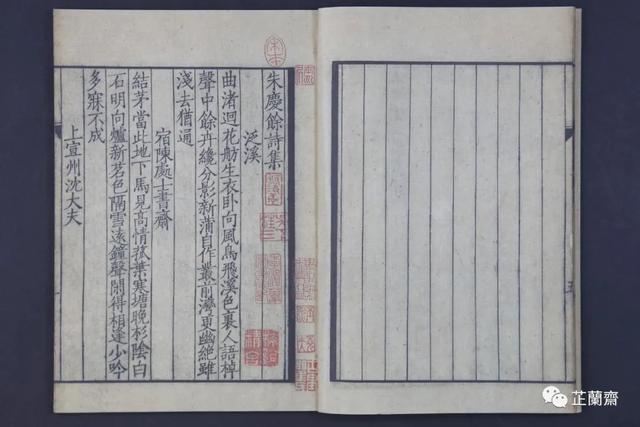 宋本
朱慶餘詩集
泛溪
曲渚迴花舫生衣卧向風鳥飛溪色裏人語棹
聲中餘卉纔分影新蒲自作叢前灣更幽絕雖
淺去猶通
宿陳處士書齋
結茅當此地下馬見高情菰葉寒塘晚杉陰白
石明向爐新茗色隔雪遠鐘聲閒得相逢少吟
多寐不成
上宣州沈大夫
芷蘭齋